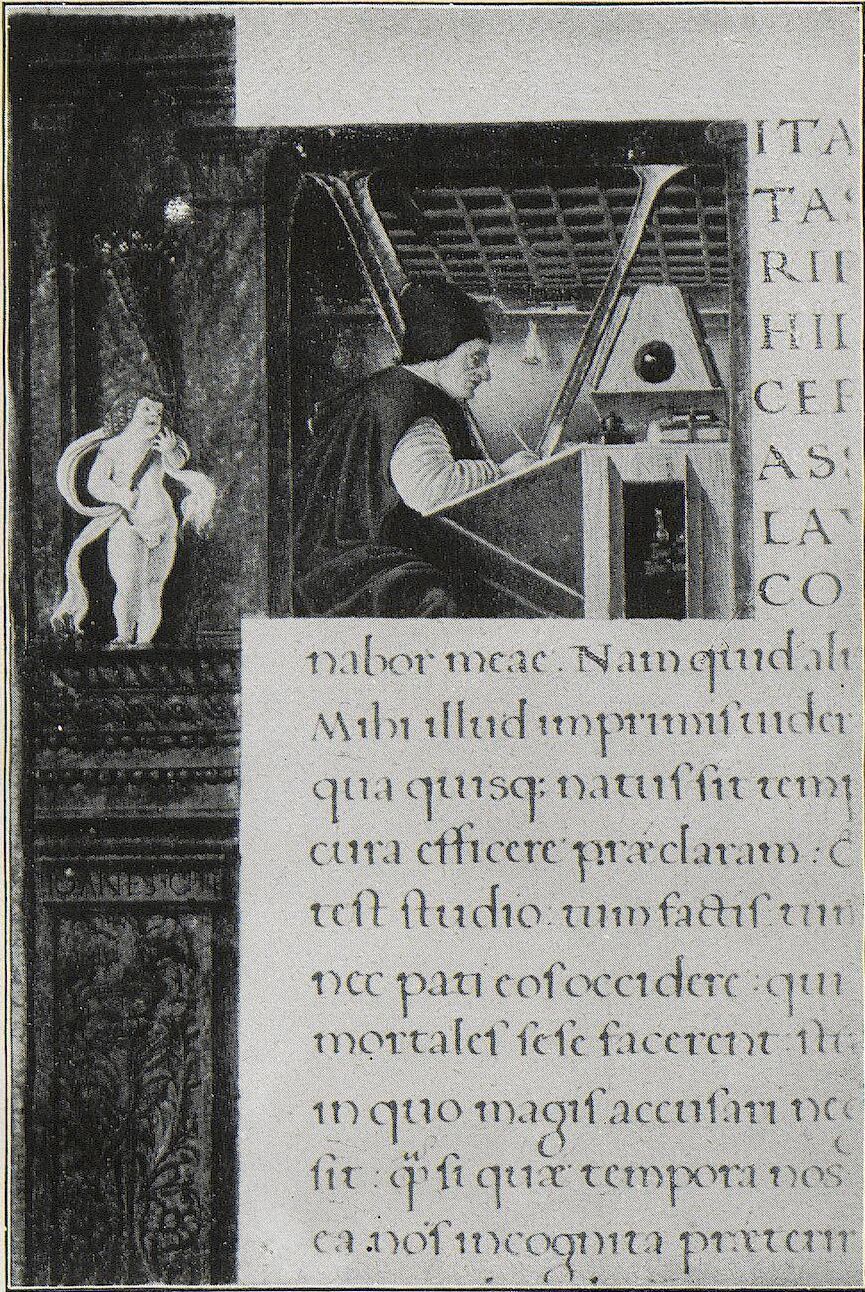 V
ITA
TA
RI
HI
CE
AS
LA
CO
nabor meae. Nam quid ali
Mihi illud imprimiſ uider
qua quisq; natuſ ſit temp
cura efficere præclaram:
teſt ſtudio: tum factiſ tum
nec pati eoſ occidere: qui
mortaleſ ſeſe facerent:
in quo magiſ accuſari nec
ſit: ſi quæ tempora nos
ea noſ incognita præterir
IOANES